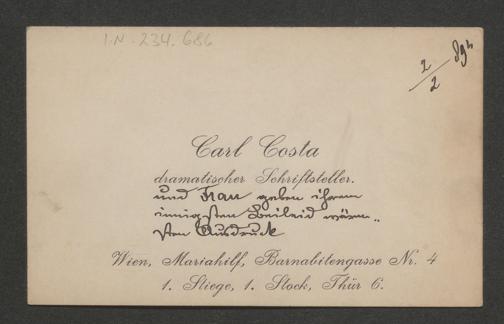 I.N. 234.686
2/2 89
Carl Costa
dramatischer Schriftsteller.
und Frau geben ihrem
innigsten Beileid wärm-
sten Ausdruck
Wien, Mariahilf, Barnabitengasse Nr. 4
1. Stiege, 1. Stock, Thür 6.